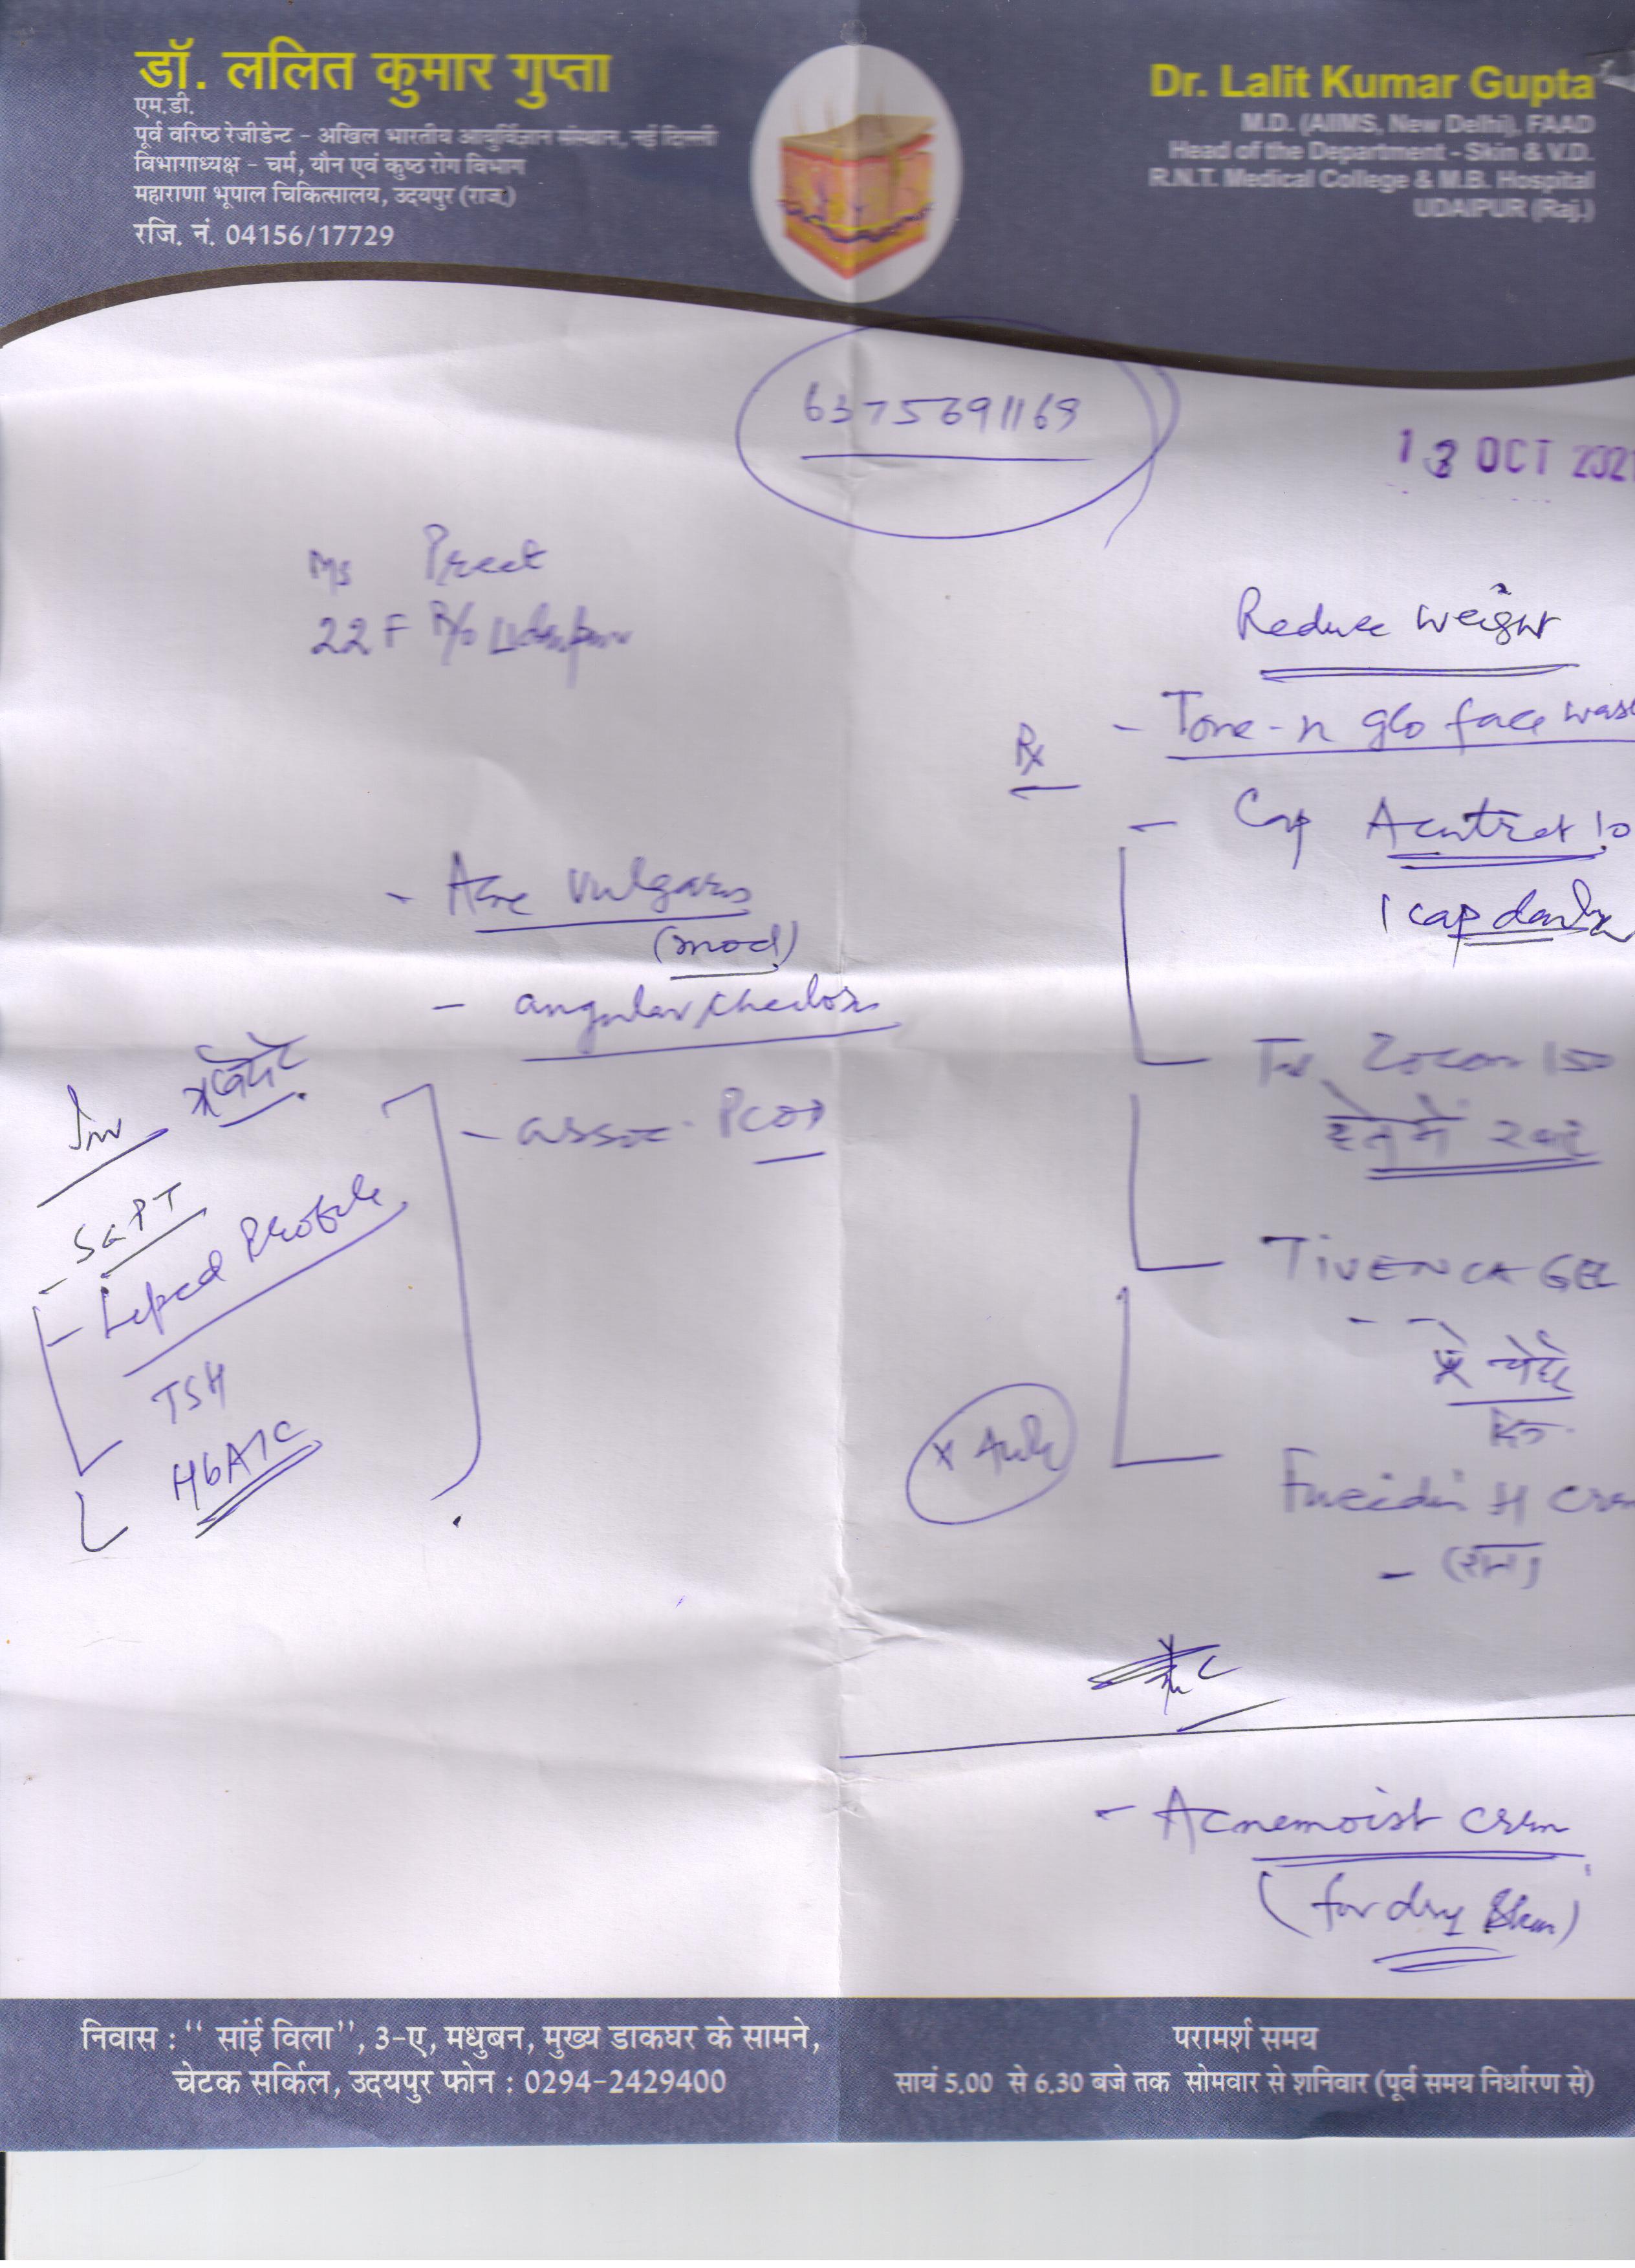 डॉ. ललित कुमार गुप्ता
एम.डी.
पूर्व वरिष्ठ रेजीडेन्ट - अखिल भारतीय आयुर्विज्ञान संस्थान, नई दिल्ली
विभागाध्यक्ष - चर्म, यौन एवं कुष्ठ रोग विभाग
महाराणा भूपाल चिकित्सालय, उदयपुर (राज.)
रजि. नं. 04156/17729
Dr. Lalit Kumar Gupta
M.D. (AIIMS, New Delhi), FAAD
Head of the Department - Skin & V.D.
R.N.T. Medical College & M.B. Hospital
UDAIPUR (Raj.)
13 OCT 202
Ms Preet
22 F R/o Udaipur
- Acne vulgaris
(mod)
- angular
- assoc. PCOS
Inv
- SGPT
- Lipid Profile
TSH
HbA1C
Reduce weight
Rx
- Tone-n glo face was
- Cap Acutret 10
1 cap daily
Zocon 150
TIVENCA GEL
Fucidin H
- Acnemoist crem
(for dry skin)
निवास : “ सांई विला”, 3-ए, मधुबन, मुख्य डाकघर के सामने,
चेटक सर्किल, उदयपुर फोन : 0294-2429400
परामर्श समय
सायं 5.00 से 6.30 बजे तक सोमवार से शनिवार (पूर्व समय निर्धारण से)